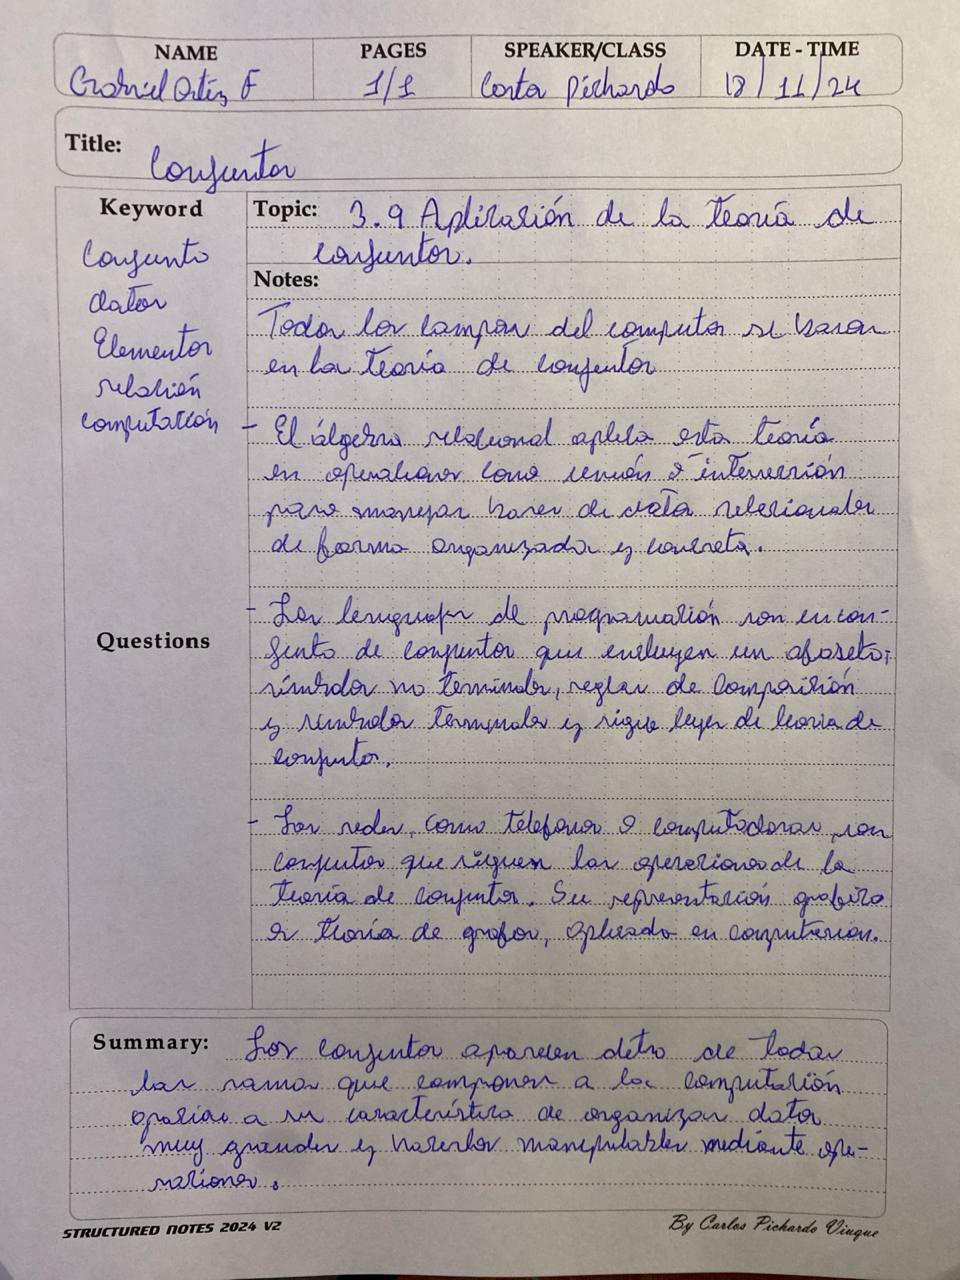 NAME PAGES SPEAKER/CLASS DATE - TIME
Gabriel Ortiz F 1/1 Costa Pichardo 18/11/24
Title: Conjuntos
Keyword
Conjunto
datos
Elementos
relación
computación
Topic: 3.9 Aplicación de la teoría de
conjuntos.
Notes:
Todos los campos del computo se basan
en la teoría de conjuntos
- El álgebra relacional aplica esta teoría
en operaciones como unión o intersección
para manejar bases de data relacionales
de forma organizada y concreta.
Questions
- Los lenguajes de programación son un con-
junto de conjuntos que incluyen un
símbolos no terminales, reglas de composición
y símbolos terminales y sigue leyes de teoría de
conjuntos.
- Las redes, como telefonos o computadoras, son
conjuntos que siguen las operaciones de la
teoría de conjuntos. Su representación grafica
es teoría de grafos, aplicado en computación.
Summary: Los conjuntos aparecen detro de todas
las ramas que componen a la computación
gracias a su característica de organizar datos
muy grandes y hacerlos manipulables mediante ope-
raciones.
STRUCTURED NOTES 2024 V2
By Carlos Pichardo Viuque